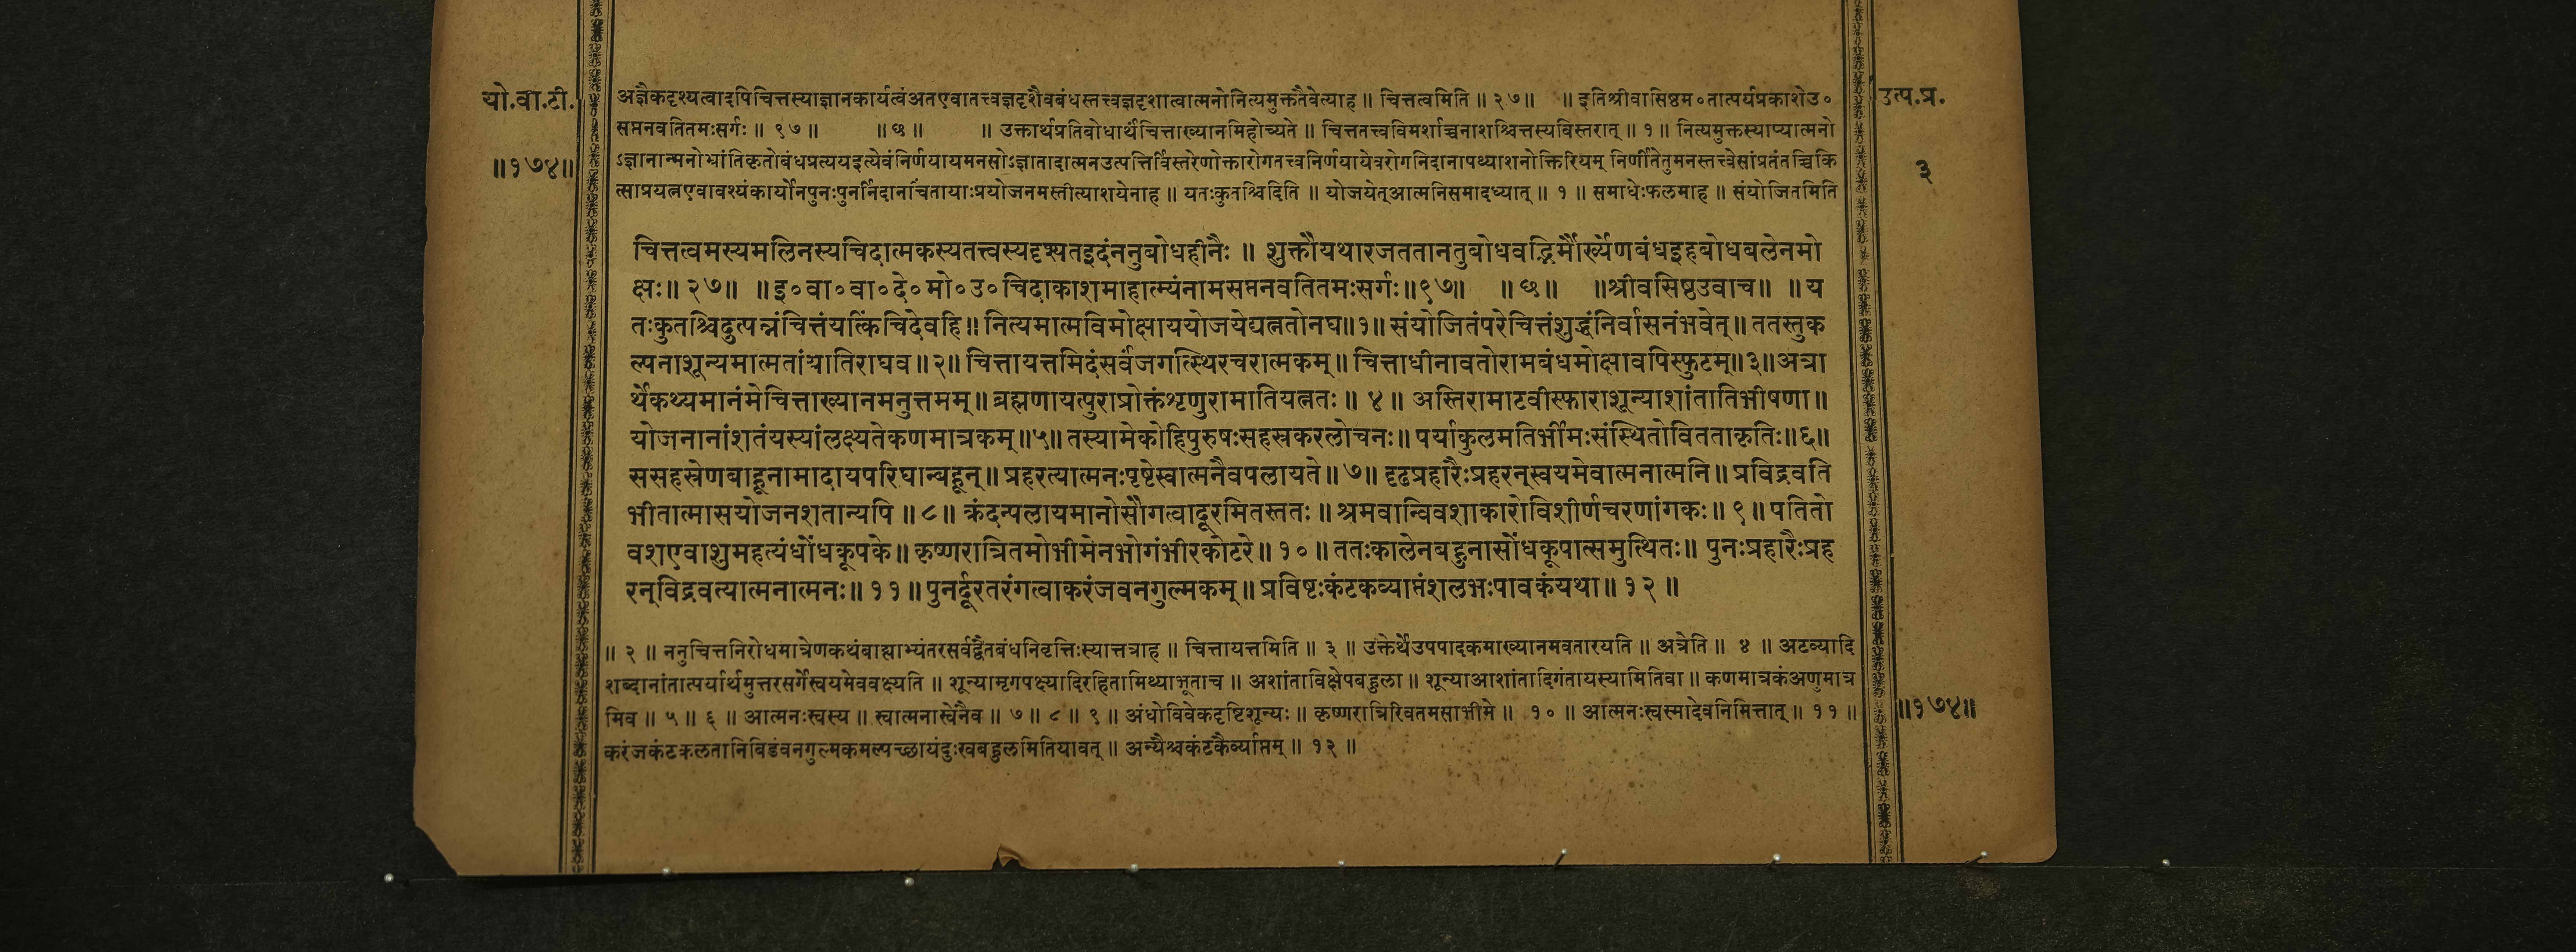 यो.वा.टी.
॥१७४॥
उत्प.प्र.
३
अज्ञैकदृश्यत्वादपिचित्तस्याज्ञानकार्यत्वंअतएवातत्त्वज्ञदृशैवबंधस्तत्त्वज्ञदृशात्वात्मनोनित्यमुक्ततैवेत्याह ॥ चित्तत्वमिति ॥ २७ ॥ ॥ इतिश्रीवासिष्ठम०तात्पर्यप्रकाशेउ०
सप्तनवतितमःसर्गः ॥ ९७ ॥ ॥ छ ॥ ॥ उक्तार्थप्रतिबोधार्थंचित्ताख्यानमिहोच्यते ॥ चित्ततत्त्वविमर्शाच्चनाशश्चित्तस्यविस्तरात् ॥ १ ॥ नित्यमुक्तस्याप्यात्मनो
ऽज्ञानान्मनोभ्रांतिकृतोबंधप्रत्ययइत्येवंनिर्णयायमनसोऽज्ञातादात्मनउत्पत्तिर्विस्तरेणोक्तारोगतत्त्वनिर्णयायेवरोगनिदानापथ्याशनोक्तिरियम् निर्णीतेतुमनस्तत्त्वेसांप्रतंतच्चिकि
त्साप्रयत्नएवावश्यंकार्योनपुनःपुनर्निदानचिंतायाःप्रयोजनमस्तीत्याशयेनाह ॥ यतःकुतश्चिदिति ॥ योजयेत्आत्मनिसमादध्यात् ॥ १ ॥ समाधेःफलमाह ॥ संयोजितमिति
चित्तत्वमस्यमलिनस्यचिदात्मकस्यतत्त्वस्यदृश्यतइदंननुबोधहीनैः ॥ शुक्तौयथारजततानतुबोधवद्भिर्मौर्ख्येणबंधइहबोधबलेनमो
क्षः॥ २७॥ ॥इ०वा०वा०दे०मो०उ०चिदाकाशमाहात्म्यंनामसप्तनवतितमःसर्गः॥९७॥ ॥छ॥ ॥श्रीवसिष्ठउवाच॥ ॥य
तःकुतश्चिदुत्पन्नंचित्तंयत्किंचिदेवहि॥ नित्यमात्मविमोक्षाययोजयेद्यत्नतोनघ॥१॥ संयोजितंपरेचित्तंशुद्धंनिर्वासनंभवेत्॥ ततस्तुक
ल्पनाशून्यमात्मतांयातिराघव॥२॥ चित्तायत्तमिदंसर्वंजगत्स्थिरचरात्मकम्॥ चित्ताधीनावतोरामबंधमोक्षावपिस्फुटम्॥३॥अत्रा
र्थेकथ्यमानंमेचित्ताख्यानमनुत्तमम्॥ ब्रह्मणायत्पुराप्रोक्तंशृणुरामातियत्नतः॥ ४॥ अस्तिरामाटवीस्फाराशून्याशांतातिभीषणा॥
योजनानांशतंयस्यांलक्ष्यतेकणमात्रकम्॥५॥ तस्यामेकोहिपुरुषःसहस्रकरलोचनः॥ पर्याकुलमतिर्भीमःसंस्थितोवितताकृतिः॥६॥
ससहस्रेणबाहूनामादायपरिघान्बहून्॥ प्रहरत्यात्मनःपृष्टेस्वात्मनैवपलायते॥ ७॥ दृढप्रहारैःप्रहरन्स्वयमेवात्मनात्मनि॥ प्रविद्रवति
भीतात्मासयोजनशतान्यपि ॥८॥ क्रंदन्पलायमानोसौगत्वादूरमितस्ततः॥ श्रमवान्विवशाकारोविशीर्णचरणांगकः॥ ९॥ पतितो
वशएवाशुमहत्यंधोंधकूपके॥ कृष्णरात्रितमोभीमेनभोगंभीरकोटरे॥ १०॥ ततःकालेनबहुनासोंधकूपात्समुत्थितः॥ पुनःप्रहारैःप्रह
रन्विद्रवत्यात्मनात्मनः॥ ११॥ पुनर्दूरतरंगत्वाकरंजवनगुल्मकम्॥ प्रविष्टःकंटकव्याप्तंशलभःपावकंयथा॥ १२॥
॥ २ ॥ ननुचित्तनिरोधमात्रेणकथंबाह्याभ्यंतरसर्वद्वैतबंधनिवृत्तिःस्यात्तत्राह ॥ चित्तायत्तमिति ॥ ३ ॥ उक्तेर्थेउपपादकमाख्यानमवतारयति ॥ अत्रेति ॥ ४ ॥ अटव्यादि
शब्दानांतात्पर्यार्थमुत्तरसर्गेस्वयमेववक्ष्यति ॥ शून्यामृगपक्ष्यादिरहितामिथ्याभूताच ॥ अशांताविक्षेपबहुला ॥ शून्याआशांतादिगंतायस्यामितिवा ॥ कणमात्रकंअणुमात्र
मिव ॥ ५ ॥ ६ ॥ आत्मनःस्वस्य ॥ स्वात्मनास्वेनैव ॥ ७ ॥ ८ ॥ ९ ॥ अंधोविवेकदृष्टिशून्यः ॥ कृष्णरात्रिरिवतमसाभीमे ॥ १० ॥ आत्मनःस्वस्मादेवनिमित्तात् ॥ ११ ॥
करंजकंटकलतानिबिडंवनगुल्मकमल्पच्छायंदुःखबहुलमितियावत् ॥ अन्यैश्चकंटकैर्व्याप्तम् ॥ १२ ॥
॥१७४॥